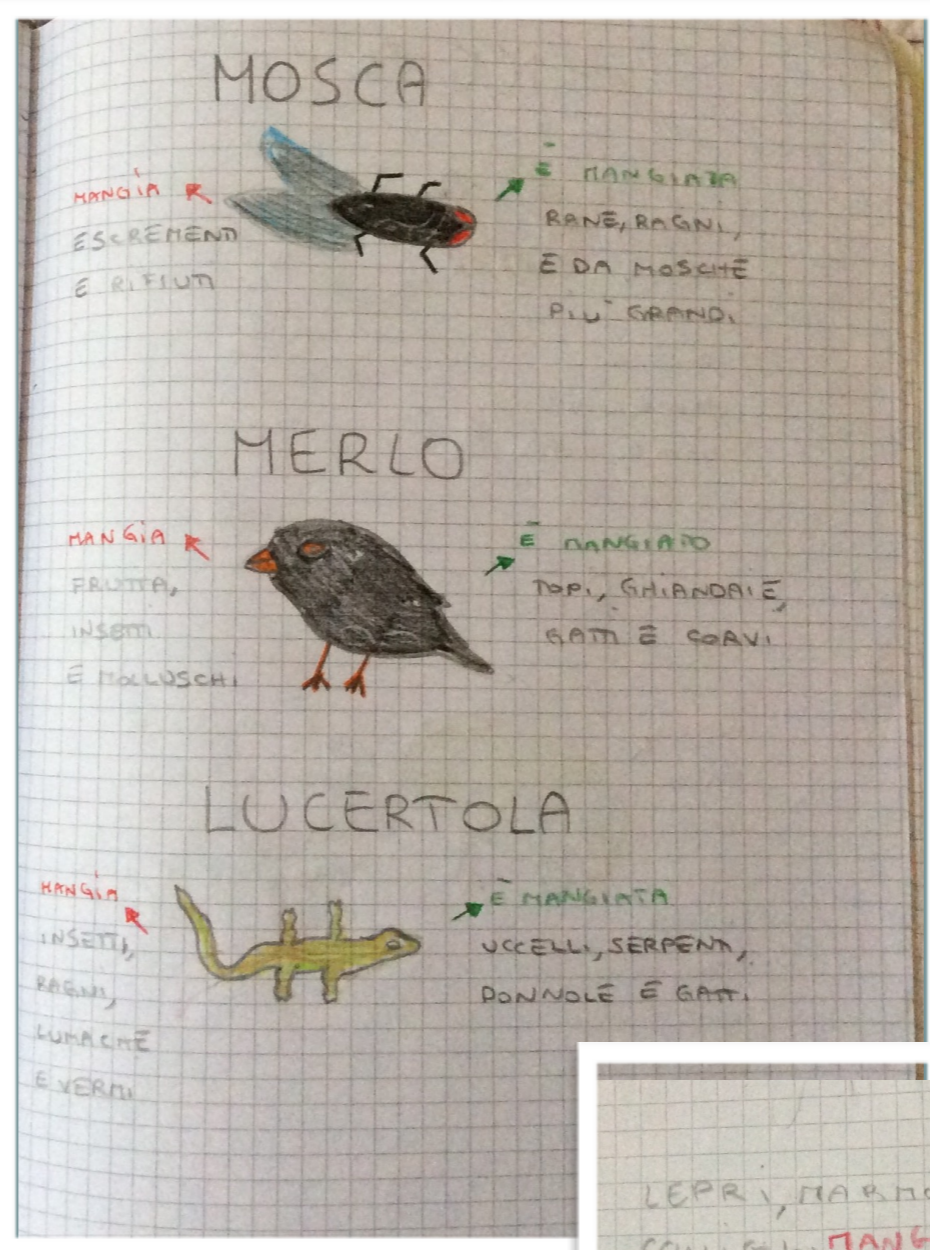 MOSCA
MANGIA
ESCREMENTI
E RIFIUTI
È MANGIATA
RANE, RAGNI,
E DA MOSCHE
PIÙ GRANDI
MERLO
MANGIA
FRUTTA,
INSETTI
E MOLLUSCHI
È MANGIATO
TOPI, GHIANDAIE,
GATTI E CORVI
LUCERTOLA
MANGIA
INSETTI,
RAGNI,
LUMACHE
E VERMI
È MANGIATA
UCCELLI, SERPENTI,
DONNOLE E GATTI
LEPRI,